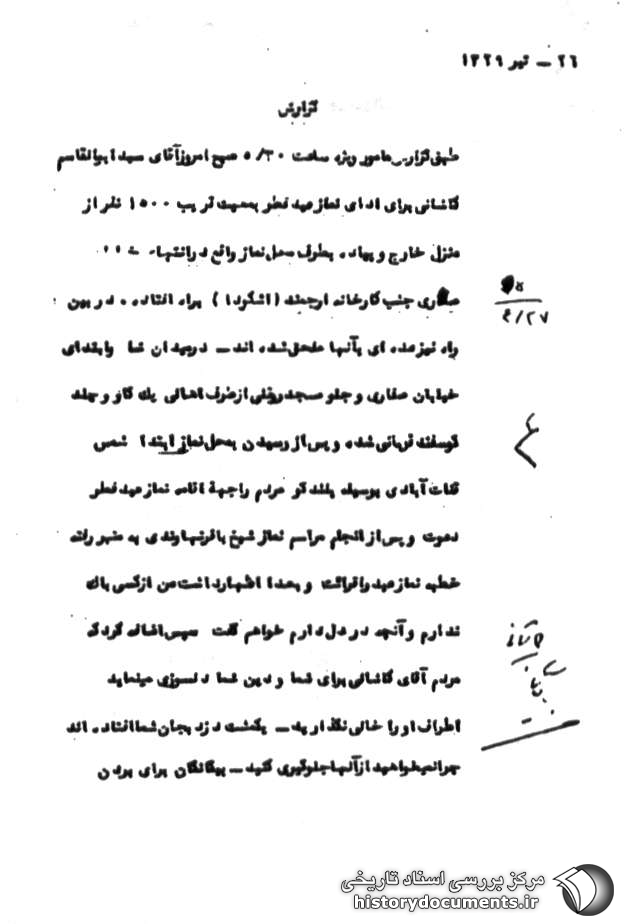 ۲۶ – تیر ۱۳۲۹
گزارش
طبق گزارش مامور ویژه ساعت ۵/۳۰ صبح امروز آقای سید ابوالقاسم
کاشانی برای ادای نماز عید فطر بجمعیت قریب ۱۵۰۰ نفر از
منزل خارج و پیاده بطرف محل نماز واقع در انتهای
صفاری جنب کارخانه ارجمند (اشکودا) براه افتاده در بین
راه نیز عده ای بآنها ملحق شده اند – در میدان شا وابتدای
خیابان صفاری و جلو مسجد از طرف اهالی یك گاو و چند
گوسفند قربانی شده و پس از رسیدن بمحل نماز ابتدا شمس
قنات آبادی بوسیله بلندگو مردم را جهة اقامه نماز عید فطر
دعوت و پس از انجام مراسم نماز شیخ باقر نهاوندی به منبر رفته
خطبه نماز عید را قرائت و بعدا اظهار داشت من از کسی باك
ندارم و آنچه در دل دارم خواهم گفت سپس اضافه کرد که
مردم آقای کاشانی برای شما و دین شما دلسوزی مینماید
اطراف او را خالی نگذارید – یکمشت دزد بجان شما افتاده اند
چرا نمیخواهید از آنها جلوگیری کنید – بیگانگان برای بردن
۴/۲۷
مرکز بررسی اسناد تاریخی
historydocuments.ir